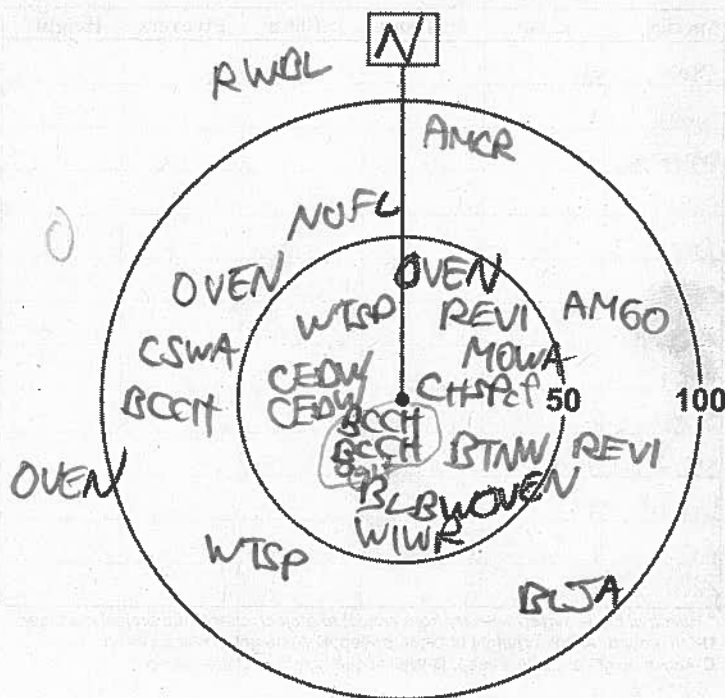 N
RWBL
AMCR
NOFL
OVEN
OVEN
WTSP
REVI
AMGO
CSWA
MOWA
CEDW
CHSP
50
100
BCCH
CEDW
BCCH
BCCH
BTNW
REVI
OVEN
BLBW
OVEN
WIWR
WTSP
BLJA